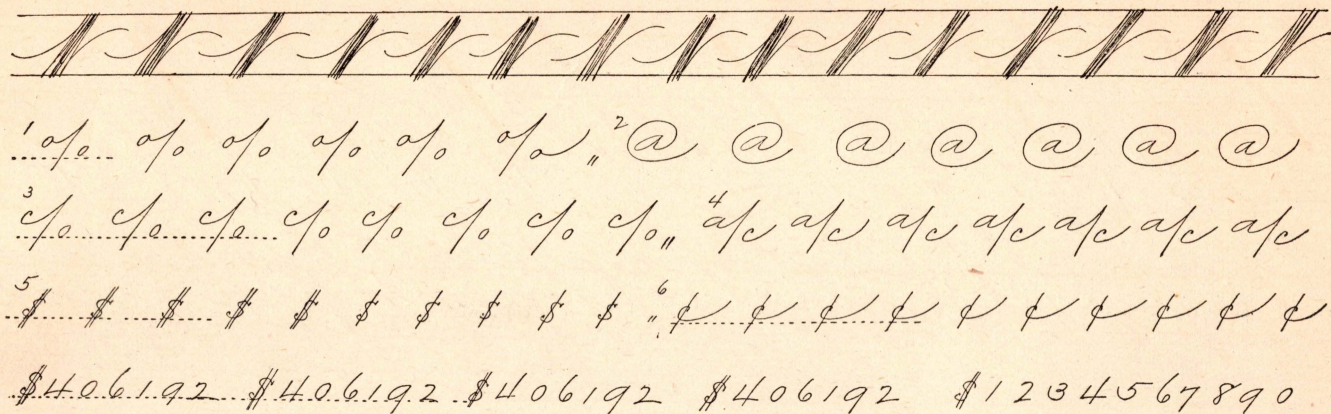 1 % % % % % % „ 2 @ @ @ @ @ @ @
3 c/o c/o c/o c/o c/o c/o c/o c/o „ 4 a/c a/c a/c a/c a/c a/c a/c
5 $ $ $ $ $ $ $ $ $ $ „ 6 ¢ ¢ ¢ ¢ ¢ ¢ ¢ ¢ ¢ ¢
$406192 $406192 $406192 $406192 $1234567890